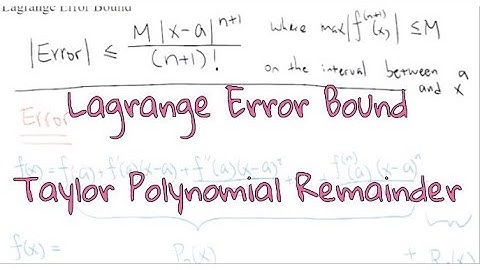 Lagrange Error Bound
|Error| ≤ M|x-a|^{n+1} / (n+1)! where max|f^{(n+1)}(x)| ≤ M
on the interval between a
and x
Lagrange Error Bound
Error
f(x) = f(a) + f'(a)(x-a) + f''(a)(x-a)²
Taylor Polynomial Remainder
f(x) = Pₙ(x) + Rₙ(x)